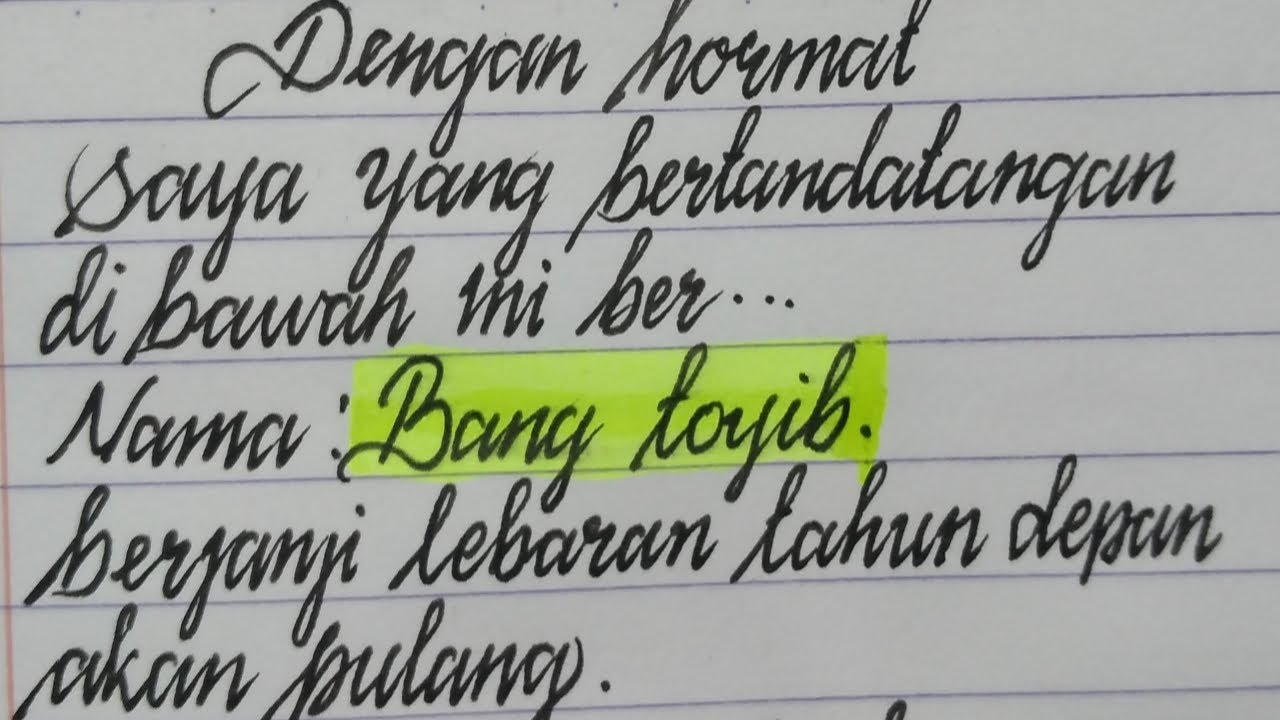 Dengan hormat
saya yang bertandatangan
di bawah ini ber...
Nama : Bang toyib.
berjanji lebaran tahun depan
akan pulang.